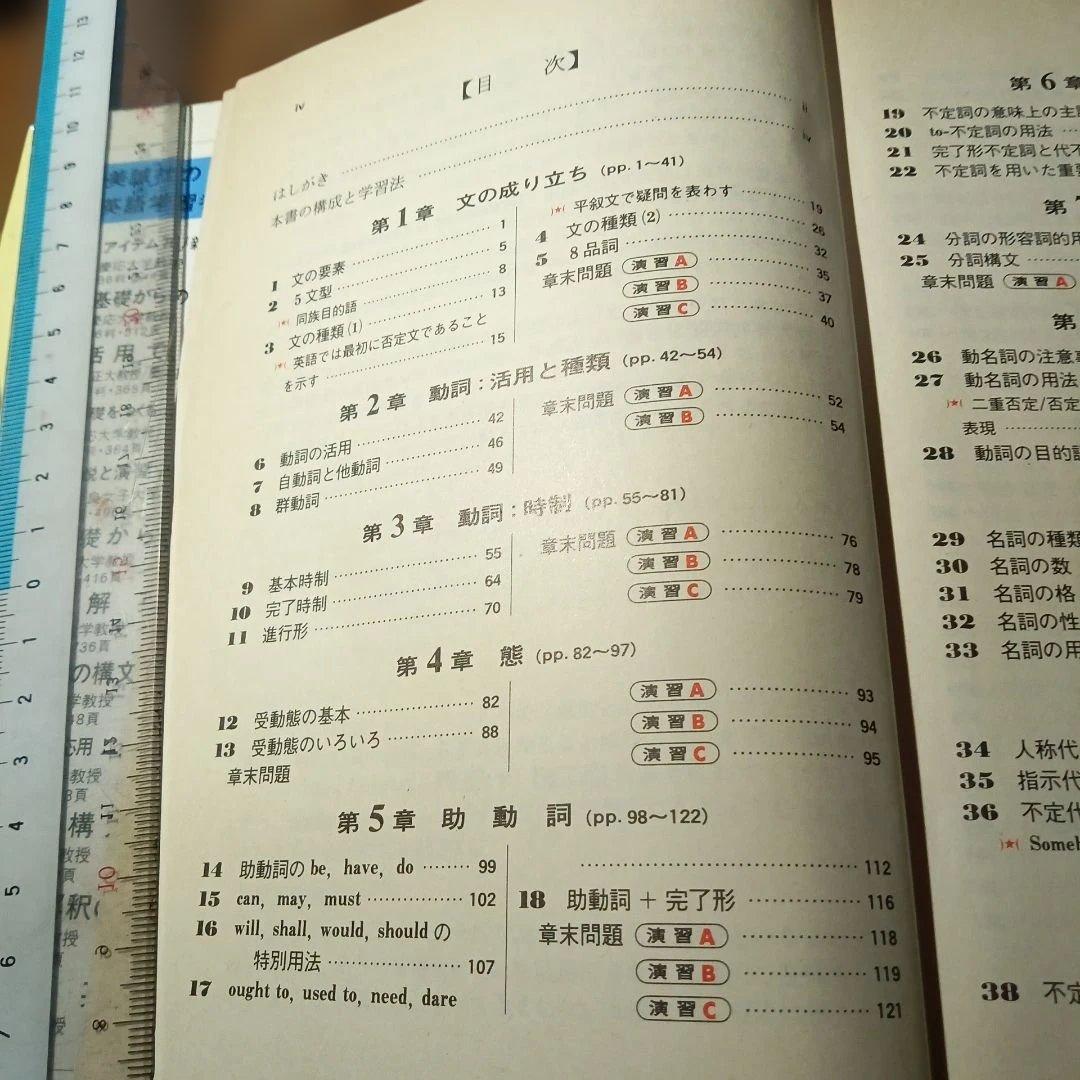 iv
【目 次】
はしがき ii
本書の構成と学習法 iv
第1章 文の成り立ち (pp. 1〜41)
1 文の要素 1
2 5文型 5
同族目的語 8
3 文の種類(1) 13
英語では最初に否定文であること
を示す 15
平叙文で疑問を表わす 19
4 文の種類(2) 26
5 8品詞 32
章末問題 演習A 35
演習B 37
演習C 40
第2章 動詞:活用と種類 (pp. 42〜54)
6 動詞の活用 42
7 自動詞と他動詞 46
8 群動詞 49
章末問題 演習A 52
演習B 54
第3章 動詞:時制 (pp. 55〜81)
9 基本時制 55
10 完了時制 64
11 進行形 70
章末問題 演習A 76
演習B 78
演習C 79
第4章 態 (pp. 82〜97)
12 受動態の基本 82
13 受動態のいろいろ 88
章末問題
演習A 93
演習B 94
演習C 95
第5章 助動詞 (pp. 98〜122)
14 助動詞の be, have, do 99
15 can, may, must 102
16 will, shall, would, should の
特別用法 107
17 ought to, used to, need, dare
112
18 助動詞 + 完了形 116
章末問題 演習A 118
演習B 119
演習C 121
第6章
19 不定詞の意味上の主
20 to-不定詞の用法
21 完了形不定詞と代不
22 不定詞を用いた重
第7
24 分詞の形容詞的用
25 分詞構文
章末問題 演習A
第
26 動名詞の注意
27 動名詞の用法
二重否定/否定
表現
28 動詞の目的語
29 名詞の種類
30 名詞の数
31 名詞の格
32 名詞の性
33 名詞の用
34 人称代
35 指示代
36 不定代
Someb
38 不定